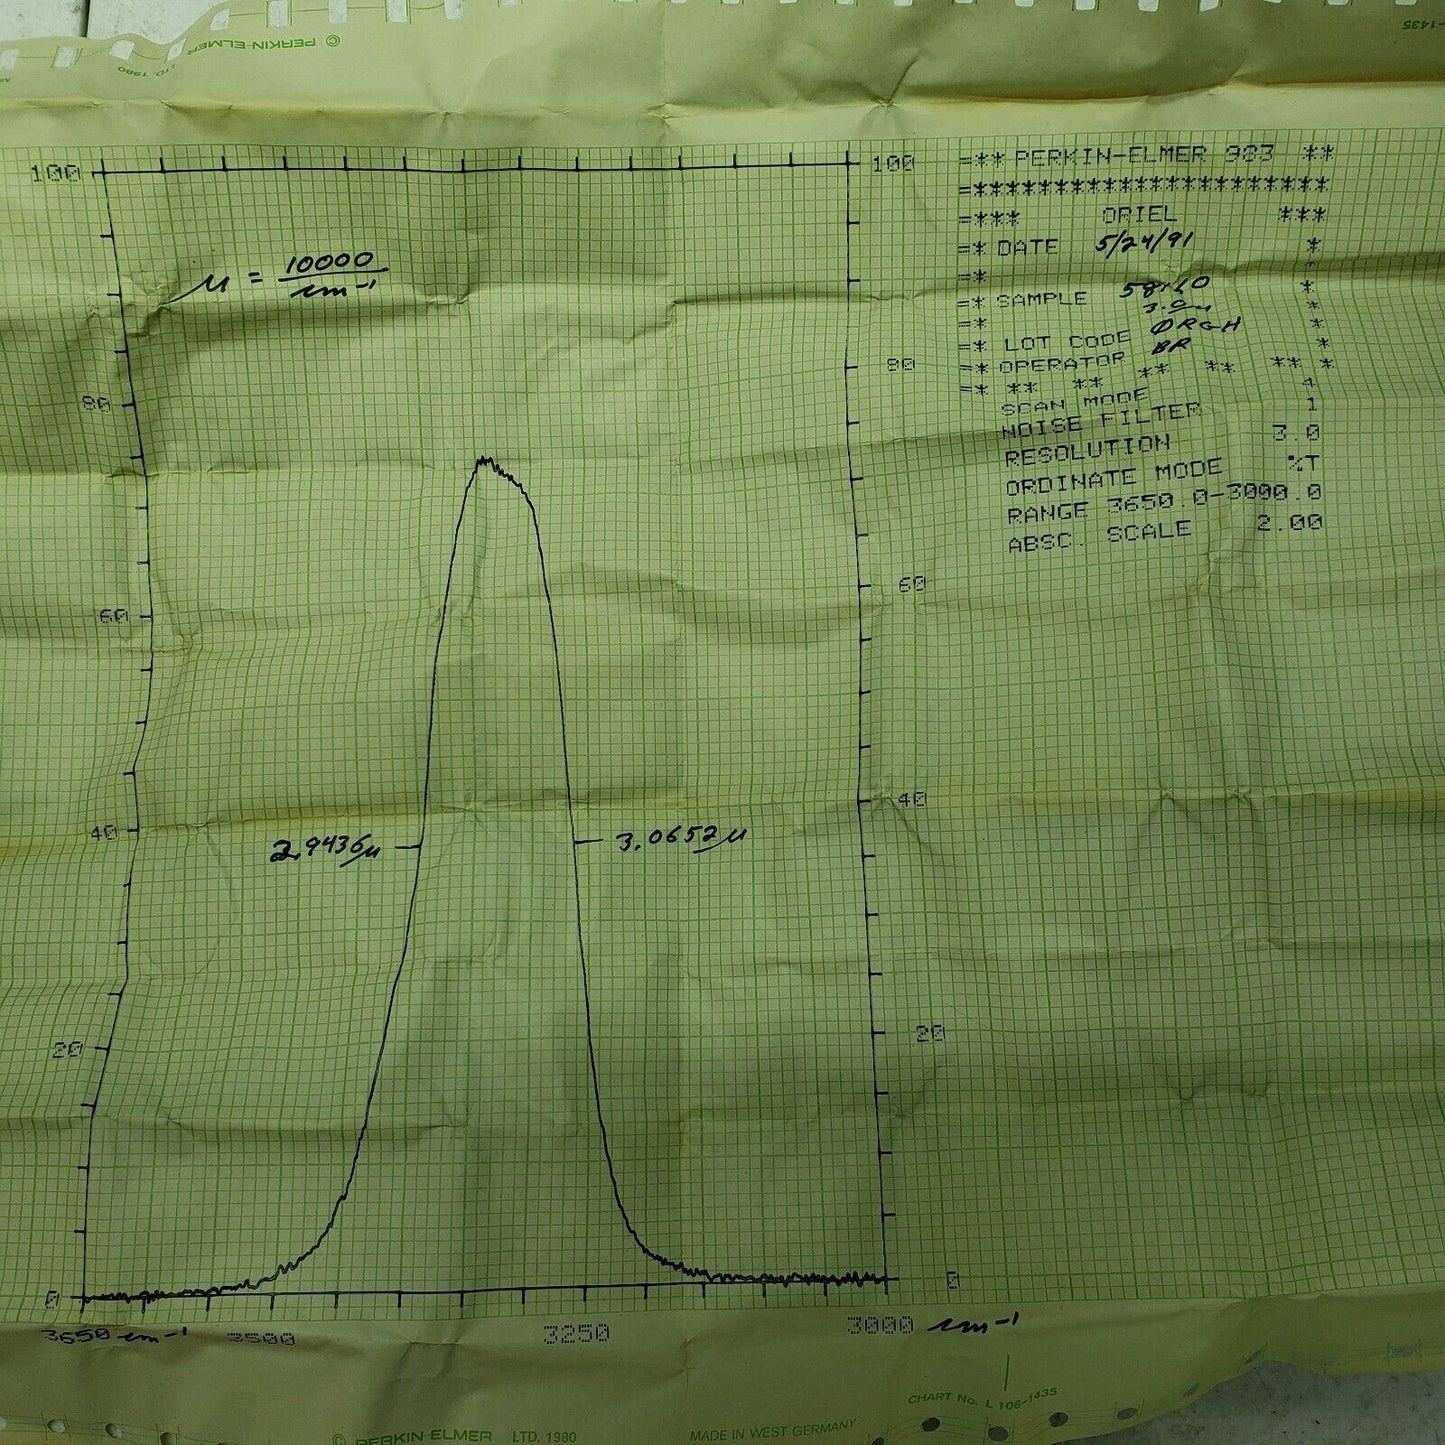 -1435
© PERKIN-ELMER
LTD. 1980
100
100
=** PERKIN-ELMER 983 **
=**********************
=*** ORIEL ***
=* DATE 5/24/91 *
=* 
=* SAMPLE *
=* *
=* LOT CODE ØRGH *
=* OPERATOR BR *
=* ** ** ** ** ** *
SCAN MODE 4
NOISE FILTER 1
RESOLUTION 3.0
ORDINATE MODE %T
RANGE 3650.0-3000.0
ABSC. SCALE 2.00
μ = 10000
cm-1
80
80
60
60
40
40
2.9436μ
3.0652μ
20
20
0
0
3650 cm-1 3500 3250 3000 cm-1
CHART No. L 106-1435
© PERKIN-ELMER LTD. 1980 MADE IN WEST GERMANY